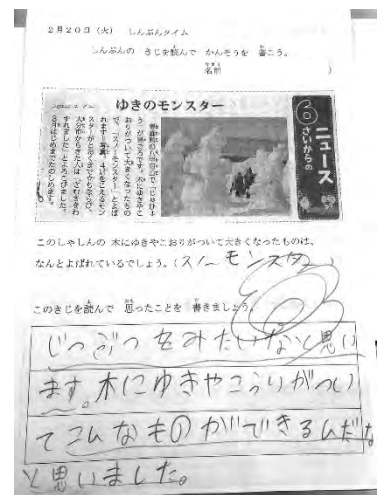 2月20日(火) しんぶんタイム
しんぶんの きじを読んで かんそうを 書こう。
名前
)
ゆきのモンスター
6
さいからの
ニュース
このしゃしんの 木にゆきやこおりがついて大きくなったものは、
なんとよばれているでしょう。(スノーモンスター)
このきじを読んで 思ったことを 書きましょう。
じつぶつをみたいなと思い
ます。木にゆきやこうりがつい
てこんなものができるんだな
と思いました。